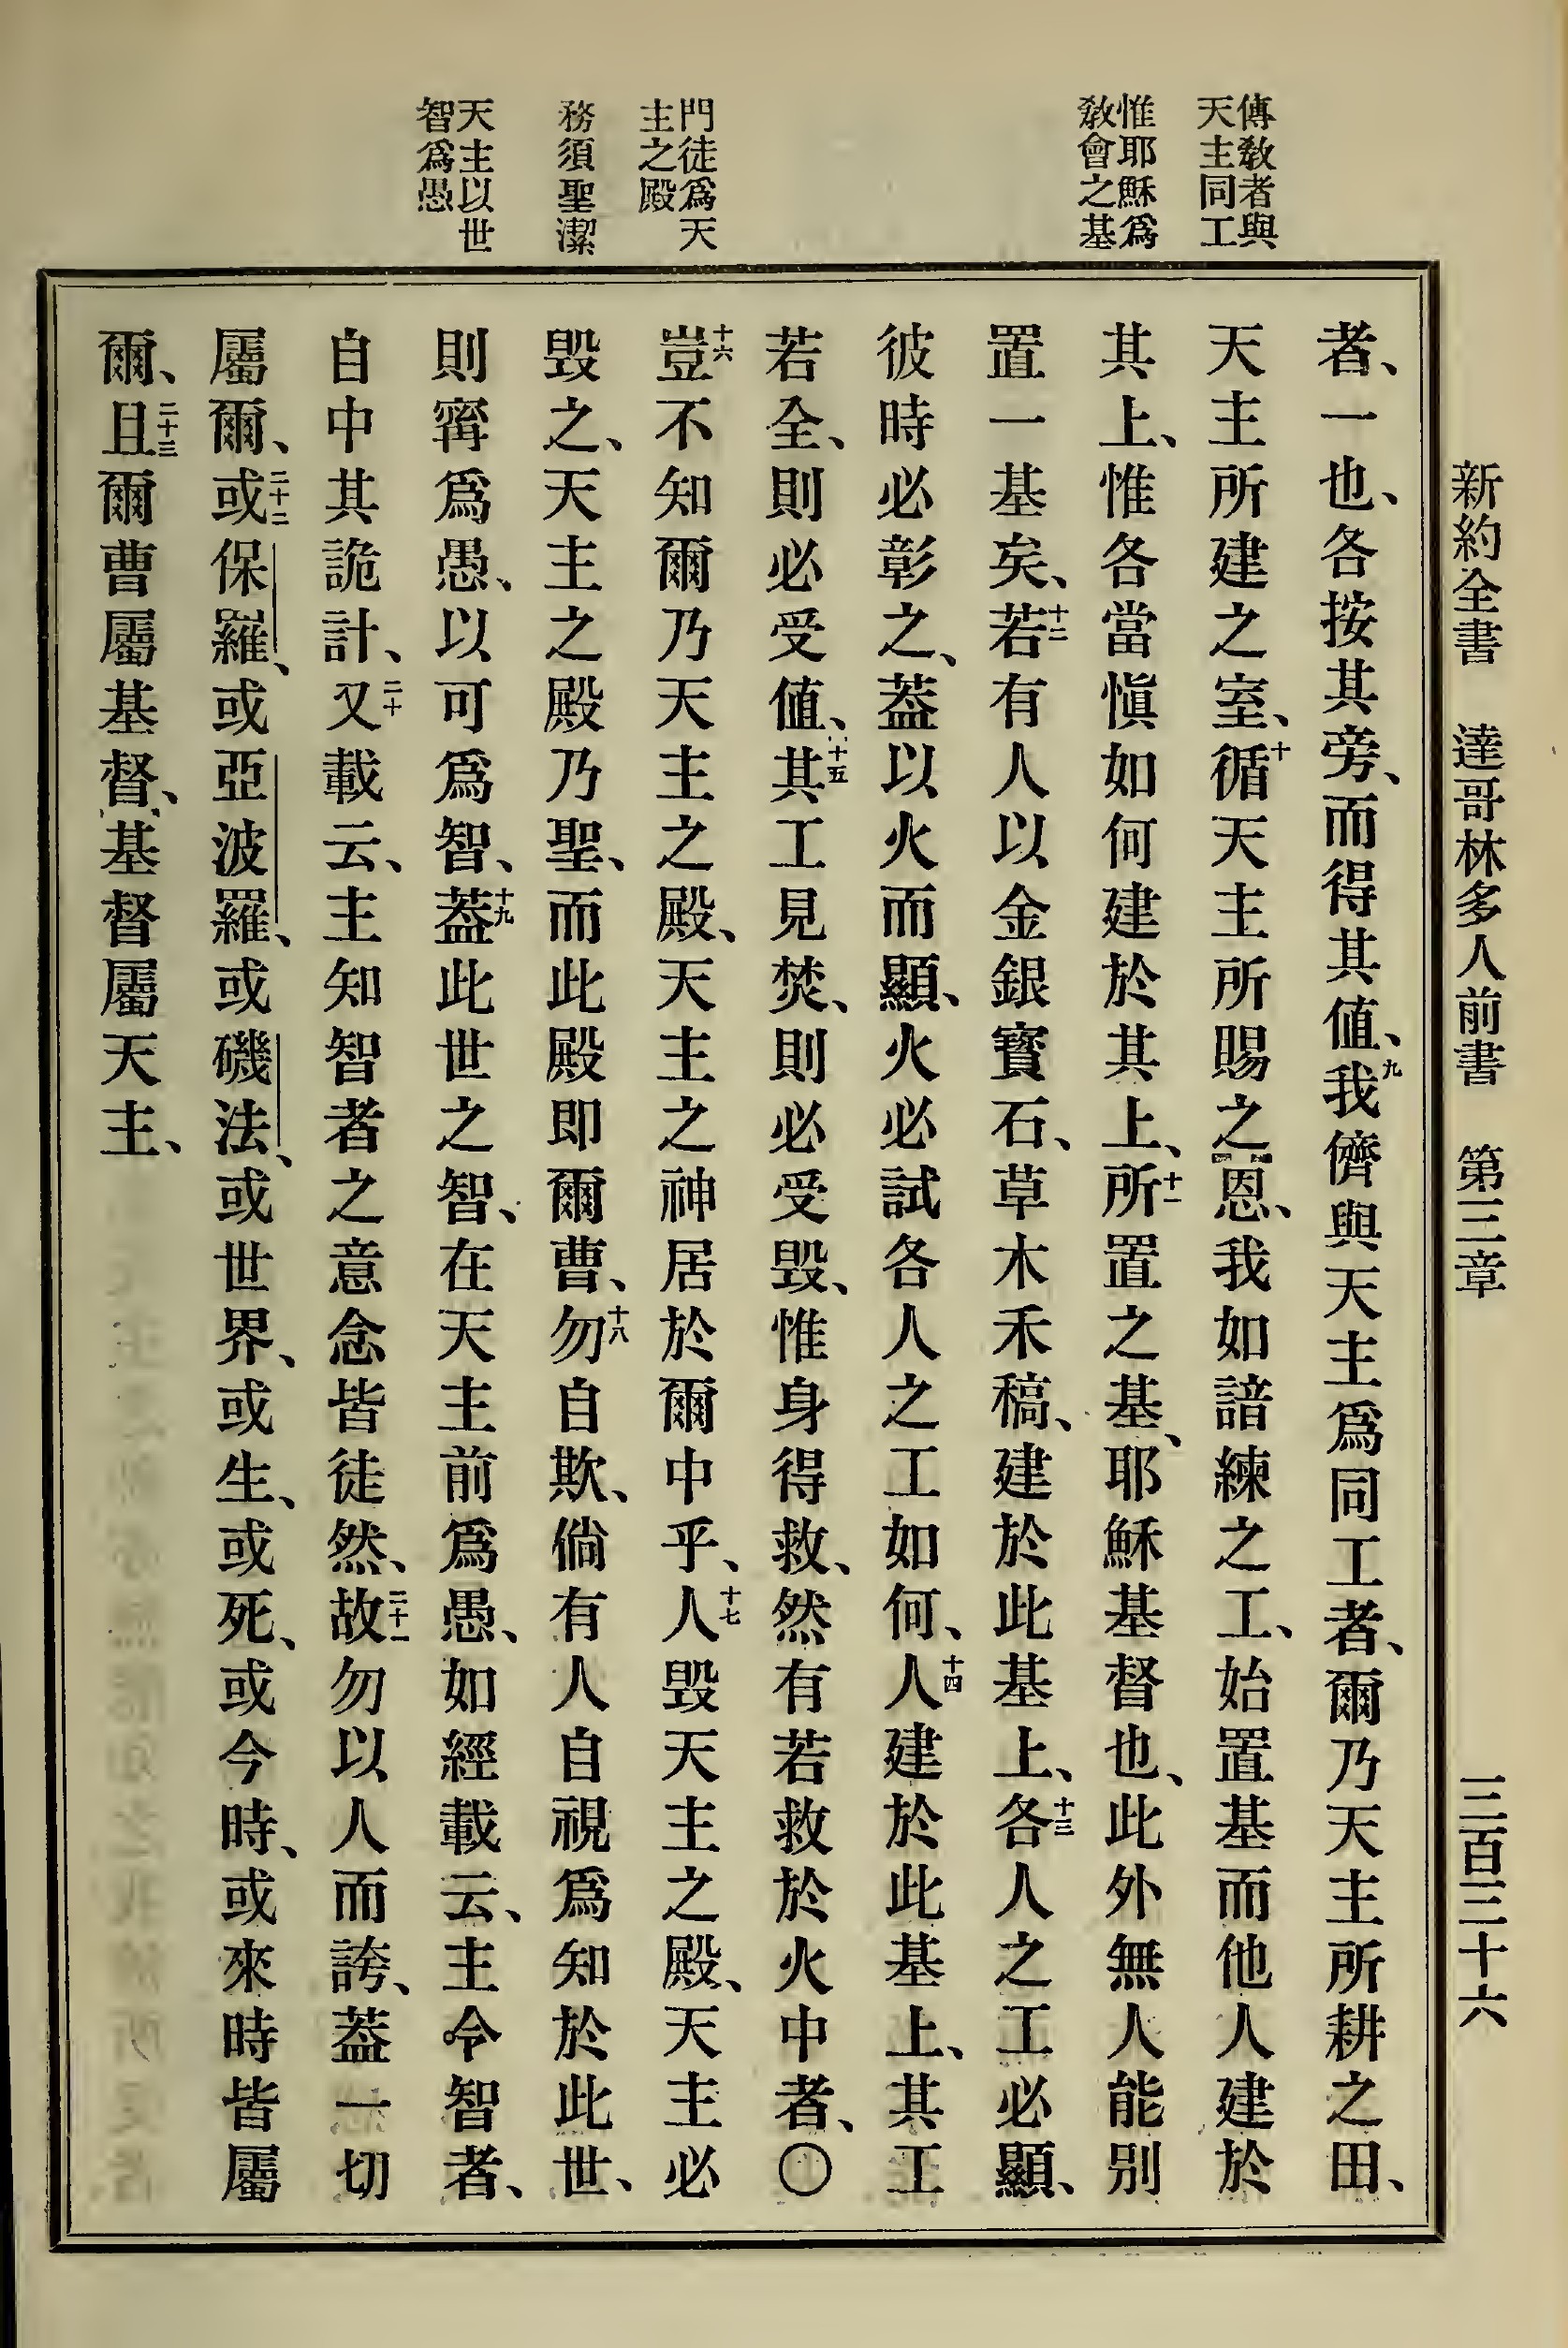 新約全書 達哥林多人前書 第三章 三百三十六
傳敎者與
天主同工
惟耶穌爲
敎會之基
門徒爲天
主之殿
務須聖潔
天主以世
智爲愚
者、一也、各按其旁、而得其値、九我儕與天主爲同工者、爾乃天主所耕之田、
天主所建之室、十循天主所賜之恩、我如諳練之工、始置基而他人建於
其上、惟各當愼如何建於其上、十一所置之基、耶穌基督也、此外無人能別
置一基矣、十二若有人以金銀寶石、草木禾稿、建於此基上、十三各人之工必顯、
彼時必彰之、蓋以火而顯、火必試各人之工如何、十四人建於此基上、其工
若全、則必受値、十五其工見焚、則必受毁、惟身得救、然有若救於火中者、〇
十六豈不知爾乃天主之殿、天主之神居於爾中乎、十七人毁天主之殿、天主必
毁之、天主之殿乃聖、而此殿即爾曹、十八勿自欺、倘有人自視爲知於此世、
則寗爲愚、以可爲智、十九蓋此世之智、在天主前爲愚、如經載云、主令智者、
自中其詭計、二十又載云、主知智者之意念皆徒然、二十一故勿以人而誇、蓋一切
屬爾、二十二或保羅、或亞波羅、或磯法、或世界、或生、或死、或今時、或來時皆屬
爾、二十三且爾曹屬基督、基督屬天主、